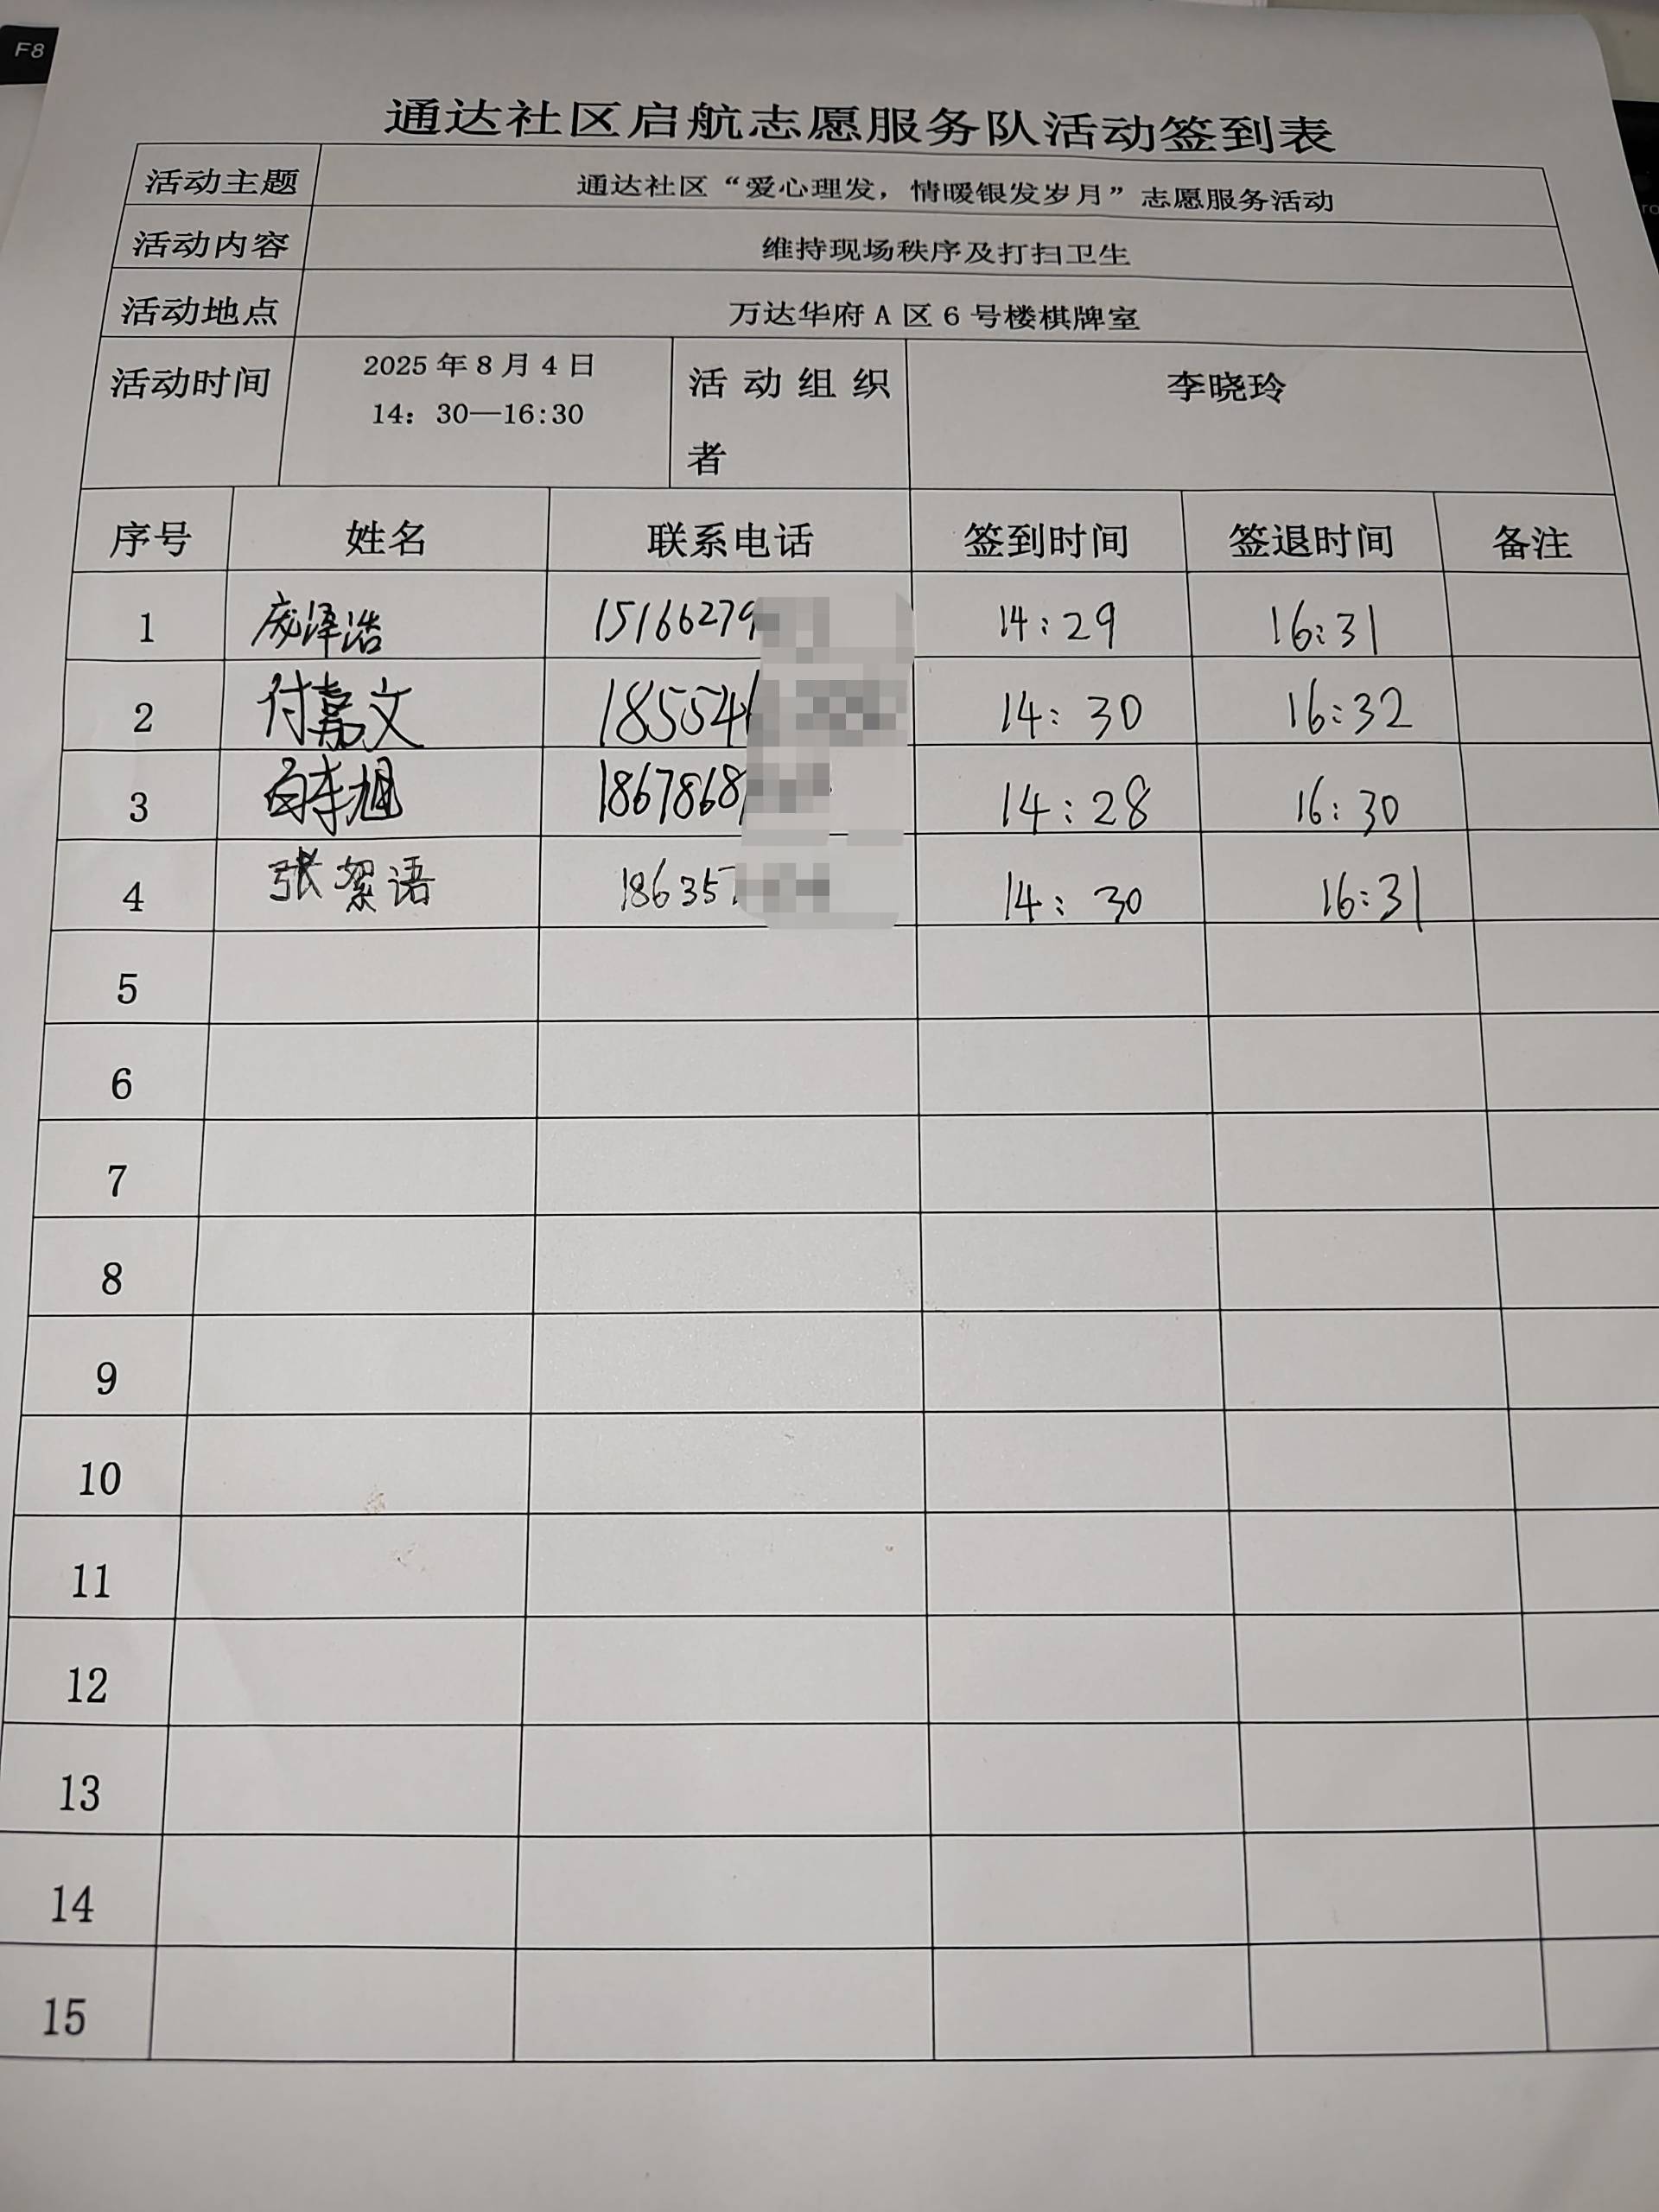 F8
通达社区启航志愿服务队活动签到表
活动主题 通达社区“爱心理发，情暖银发岁月”志愿服务活动
活动内容 维持现场秩序及打扫卫生
活动地点 万达华府 A 区 6 号楼棋牌室
活动时间 2025 年 8 月 4 日 活动组织 李晓玲
14：30—16:30 者
序号 姓名 联系电话 签到时间 签退时间 备注
1 庞泽浩 15166279 14:29 16:31
2 付嘉文 18554 14:30 16:32
3 1867868 14:28 16:30
4 张絮语 18635 14:30 16:31
5
6
7
8
9
10
11
12
13
14
15